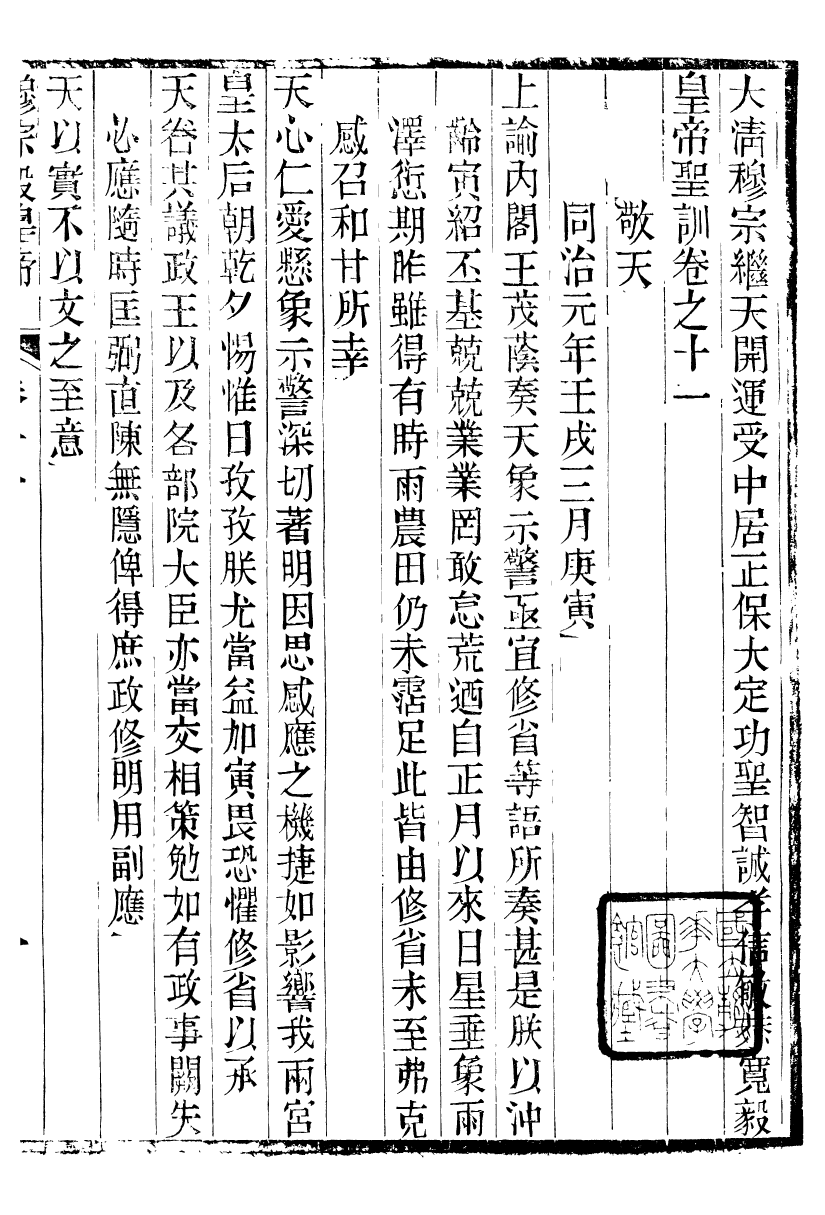 大淸穆宗繼天開運受中居正保大定功聖智誠孝信敏恭寬毅
皇帝聖訓卷之十一
敬天
同治元年壬戌三月庚寅
上諭內閣王茂蔭奏天象示警亟宜修省等語所奏甚是朕以沖
齡寅紹丕基兢兢業業罔敢怠荒迺自正月以來日星垂象雨
澤愆期昨雖得有時雨農田仍未霑足此皆由修省未至弗克
感召和甘所幸
天心仁愛懸象示警深切著明因思感應之機捷如影響我兩宮
皇太后朝乾夕惕惟日孜孜朕尤當益加寅畏恐懼修省以承
天眷其議政王以及各部院大臣亦當交相策勉如有政事闕失
必應隨時匡弼直陳無隱俾得庶政修明用副應
天以實不以文之至意
穆宗毅皇帝 卷十一
國立清華大學圖書館藏